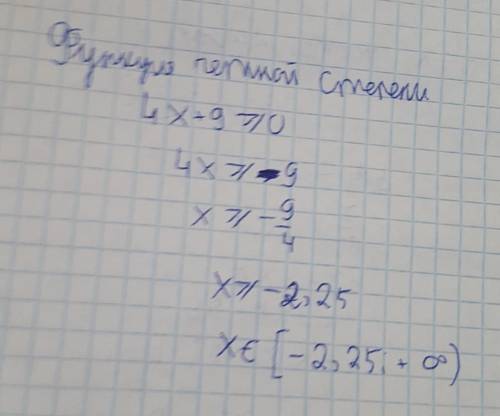 Функция четной степени
4x-9⩾0
4x⩾-9
x⩾-9/4
x⩾-2,25
x∈[-2,25;+∞)